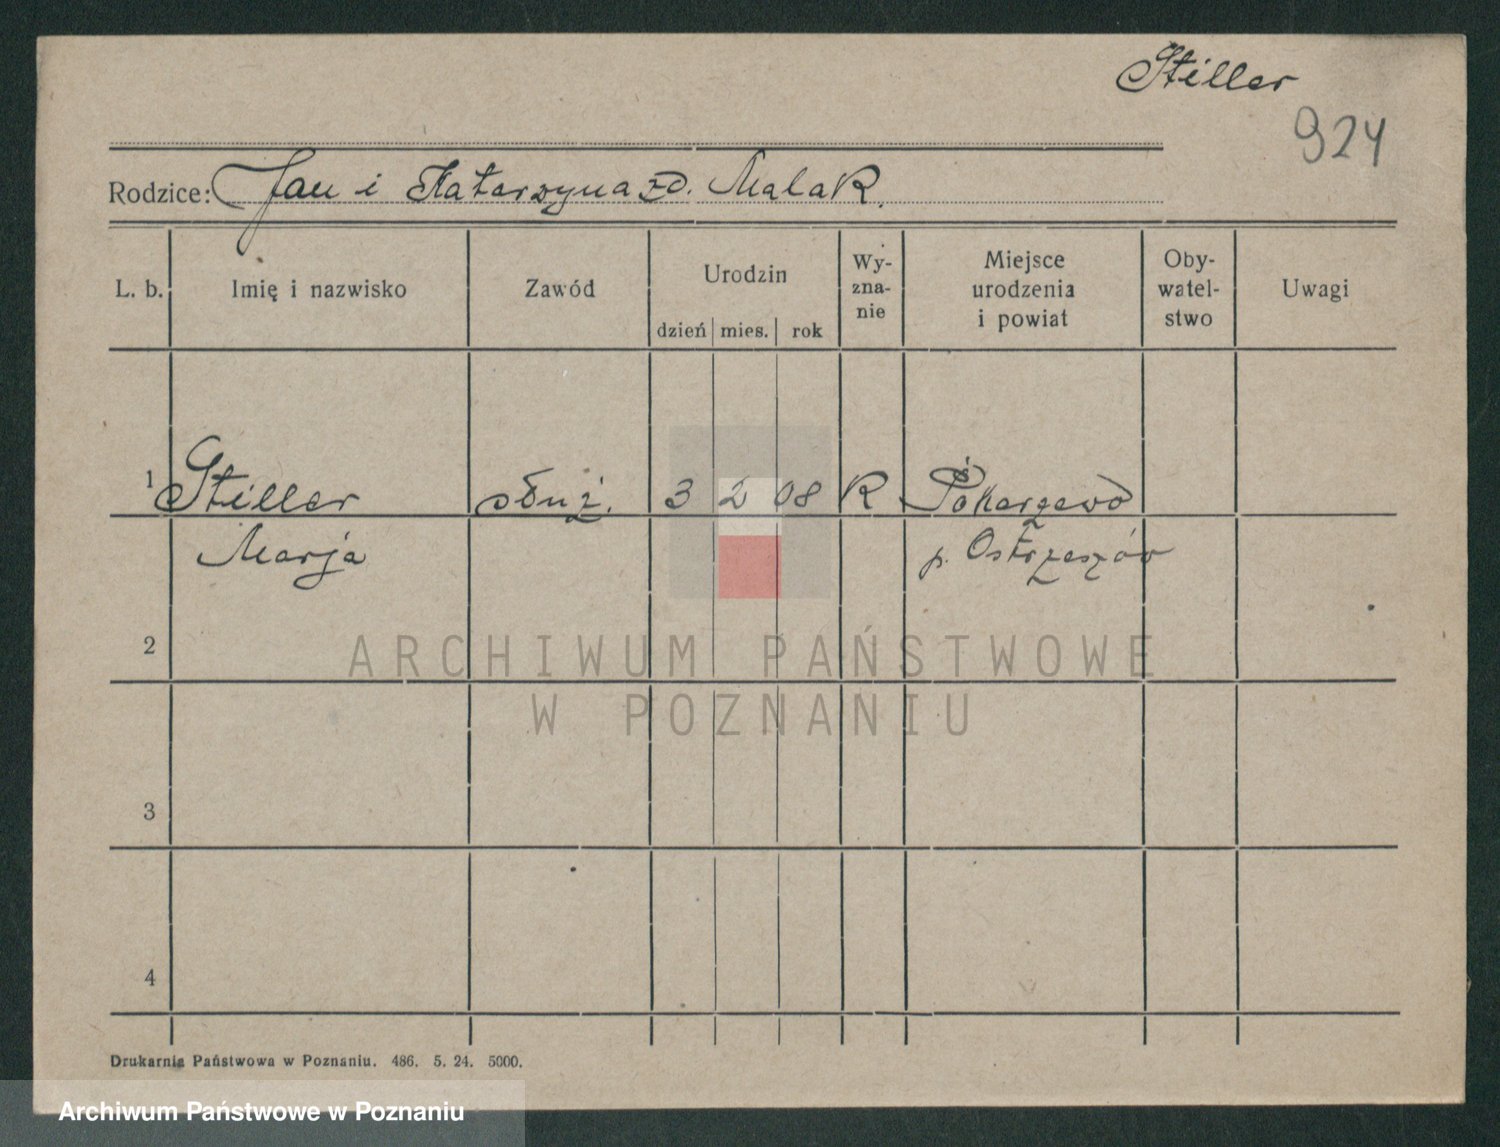 Stiller
924
Rodzice: Jan i Katarzyna zd. Malak.
L. b. Imię i nazwisko Zawód Urodzin dzień mies. rok Wy-zna-nie Miejsce urodzenia i powiat Oby-watel-stwo Uwagi
1 Stiller służ. 3 2 08 R
Marja p. Ostrzeszów
2
ARCHIWUM PAŃSTWOWE
W POZNANIU
3
4
Drukarnia Państwowa w Poznaniu. 486. 5. 24. 5000.
Archiwum Państwowe w Poznaniu